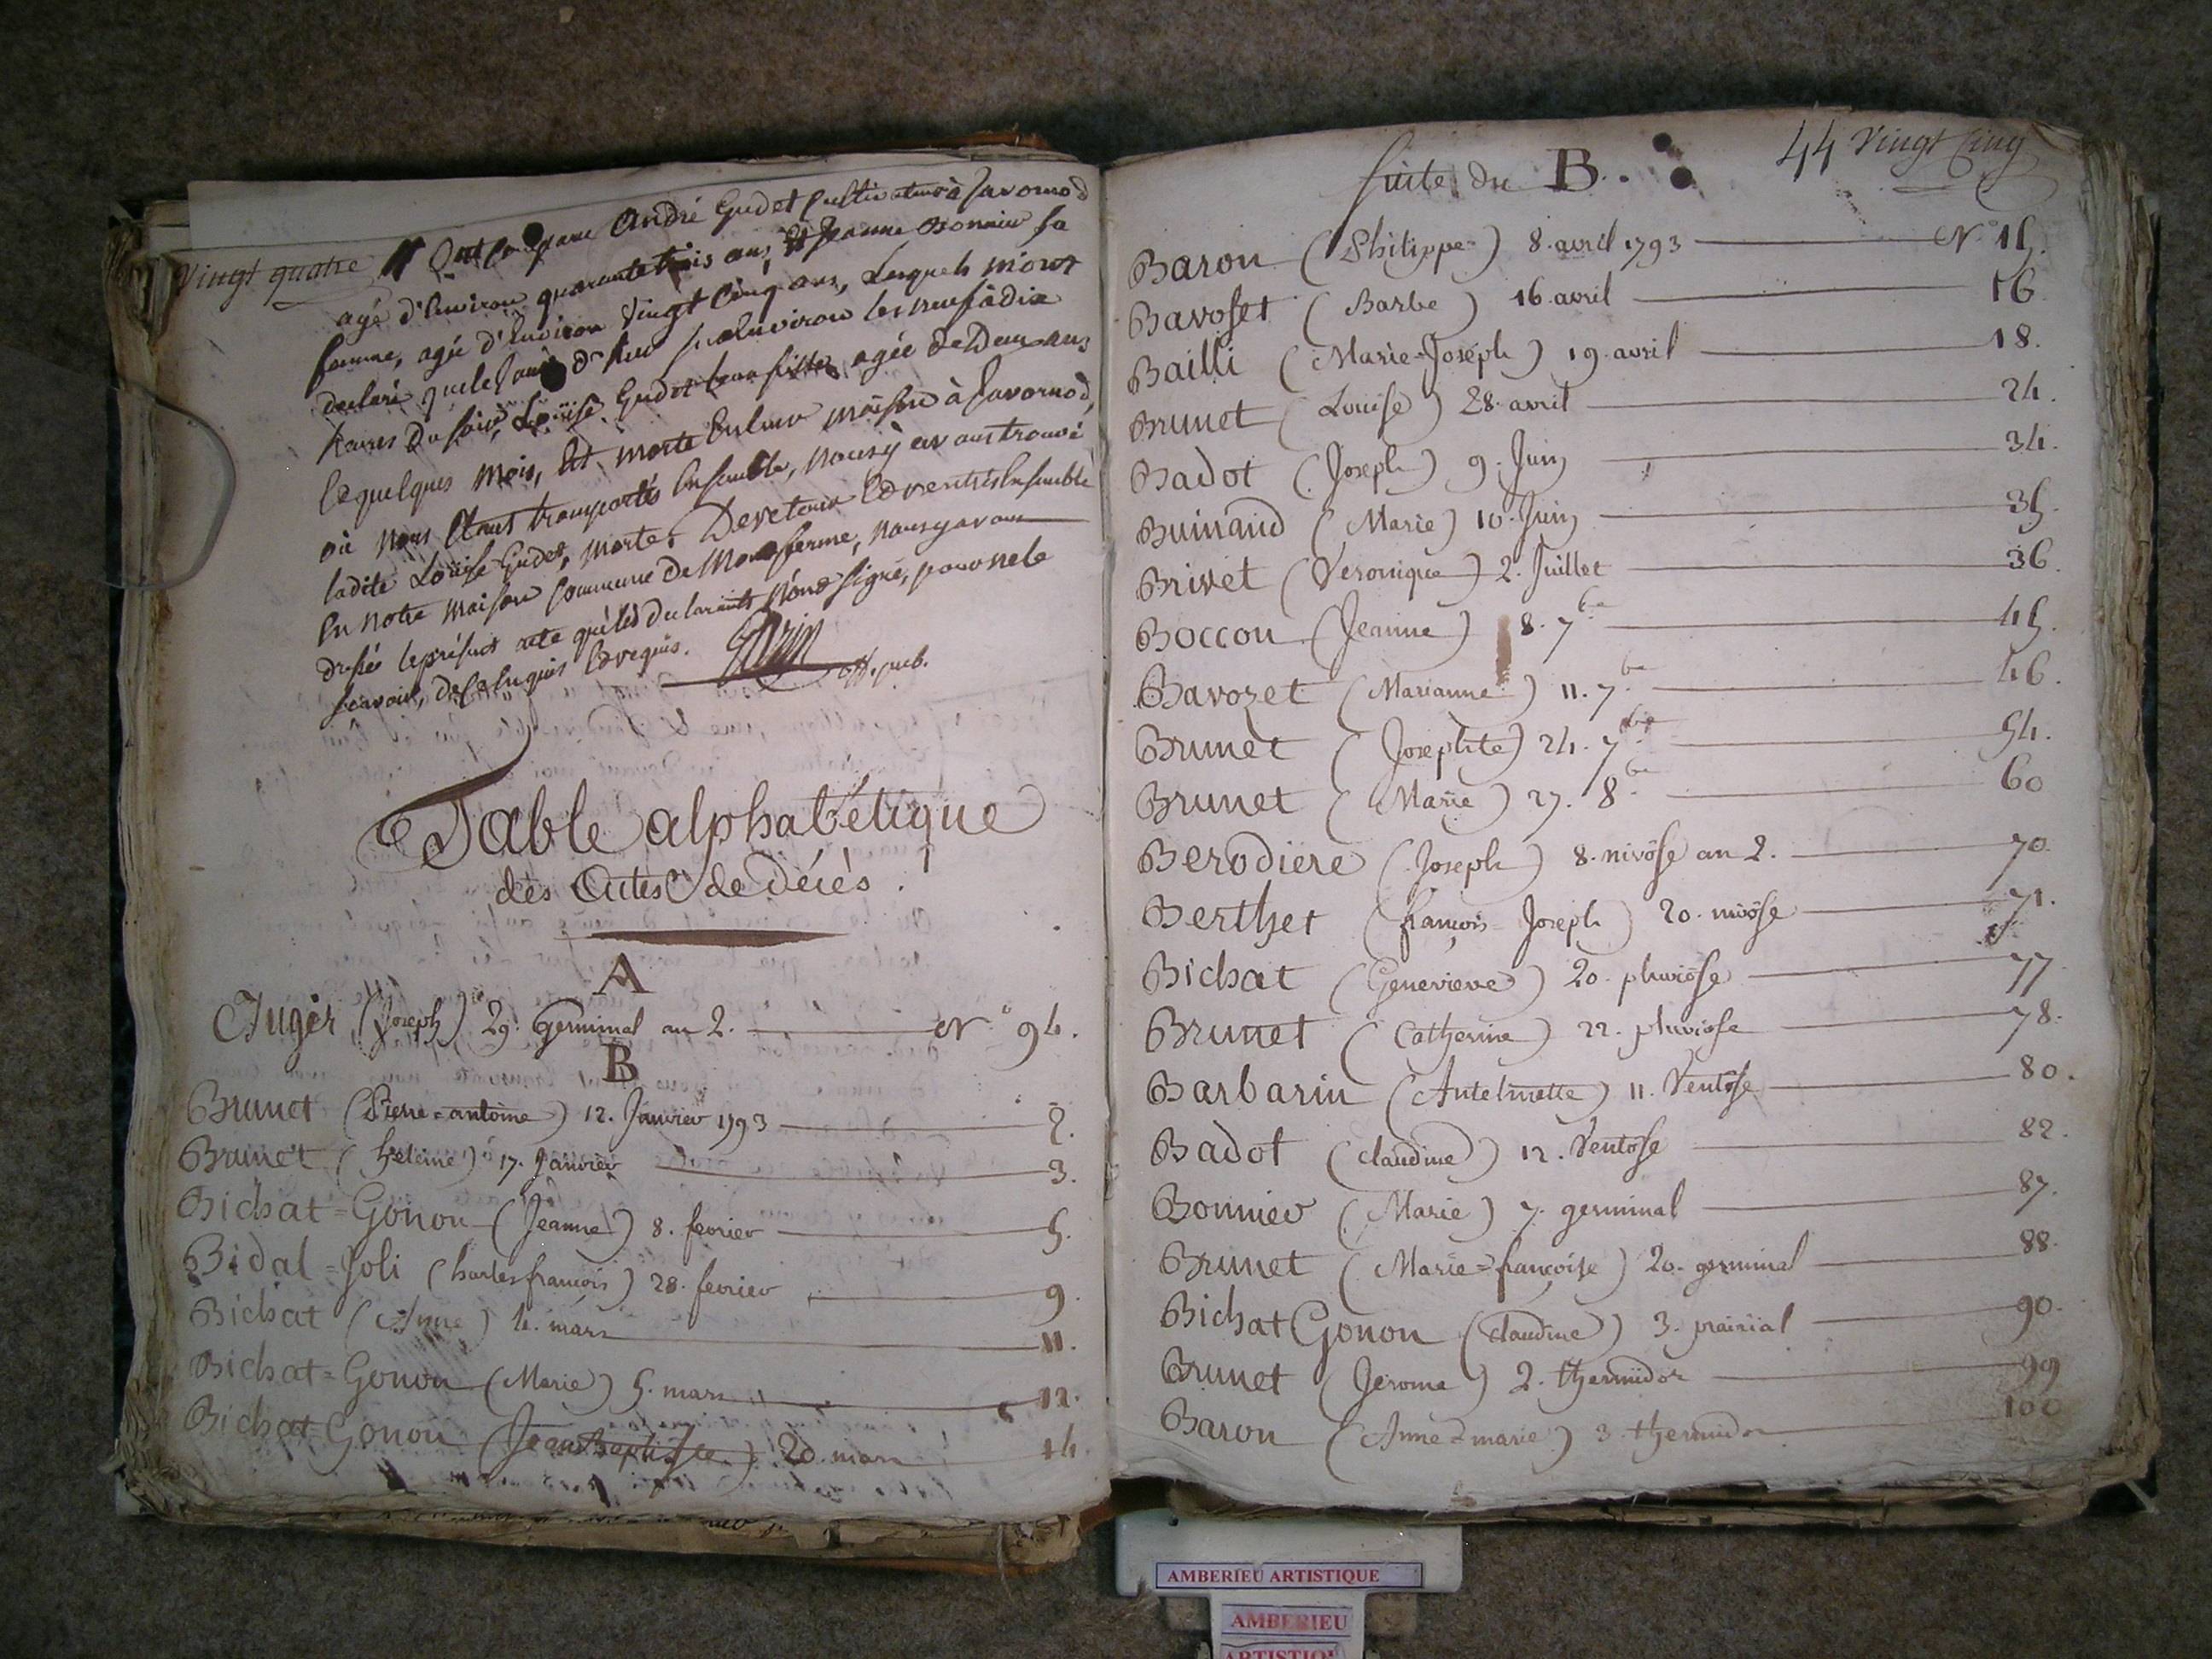 Vingt quatre Ont comparu André Gudet Cultivateur à Javornod
agé d'Environ quarante trois ans, Et Jeanne Bonnier sa
femme, agée d'Environ Vingt Cinq ans, Lesquels m'ont
declaré que le d'hier Sur environ les neuf à dix
heures du soir, Loüise Gudet leur fille, agée de Deux ans
Et quelques mois, Est morte En leur maison à Javornod,
où nous Etant transportés Ensemble, nous y avons trouvé
ladite Loüise Gudet, morte. De retour Et rentrés Ensemble
En notre maison Commune De Montferme, nous y avons
dressé le présent acte que les declarants n'ont signé, pour ne le
sçavoir, De ce Enquis Et requis. off. pub.
Table alphabétique
des Actes de décès.
A
Auger (Joseph) 29. Germinal an 2. N.º 94.
B
Brunet (Pierre=antoine) 12. Janvier 1793 2.
Brunet (heleine) 17. Janvier 3.
Bichat=Gonon (Jeanne) 8. fevrier 5.
Bidal=Joli (Charles françois) 28. fevrier 9.
Bichat (Anne) 4. mars 11.
Bichat=Gonon (Marie) 5. mars 12.
Bichat Gonon (Jean Baptiste) 20. mars 14
44 Vingt Cinq
Suite du B.
Baron (Philippe) 8. avril 1793 N.º 15.
Bavoset (Barbe) 16. avril 16.
Bailli (Marie=Joseph) 19. avril 18.
Brunet (Louise) 28. avril 24.
Badot (Joseph) 9. Juin 34.
Buinand (Marie) 10. Juin 35.
Brivet (Veronique) 2. Juillet 36.
Boccon (Jeanne) 8. 7bre 45.
Bavozet (Marianne) 11. 7bre 46.
Brunet (Josephte) 24. 7bre 54.
Brunet (Marie) 27. 8bre 60
Berodiere (Joseph) 8. nivôse an 2. 70.
Berthet (françois=Joseph) 20. nivôse 71.
Bichat (Genevieve) 20. pluviôse 77
Brunet (Catherine) 22. pluviôse 78.
Barbarin (Antelmette) 11. Ventôse 80.
Badot (claudine) 12. Ventôse 82.
Bonnier (Marie) 7. germinal 87.
Brunet (Marie=françoise) 20. germinal 88.
Bichat Gonon (claudine) 3. prairial 90.
Brunet (Jerome) 2. thermidor 99
Baron (Anne=marie) 3. thermidor 100
AMBERIEU ARTISTIQUE
AMBERIEU
ARTISTIQU